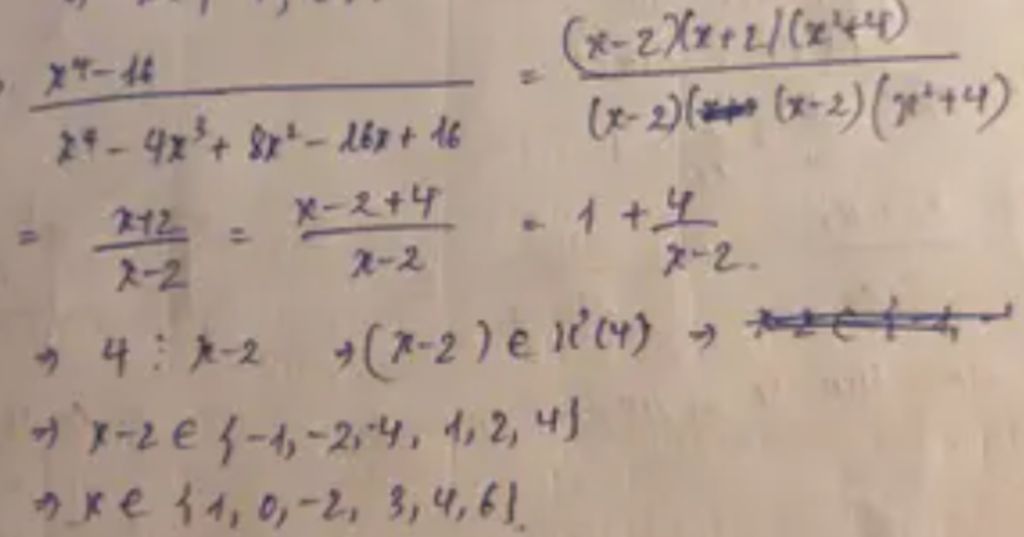 x⁴-16 / x⁴ - 4x³ + 8x² - 16x + 16 = (x-2)(x+2)(x²+4) / (x-2)( (x-2)(x²+4)
= x+2 / x-2 = x-2+4 / x-2 = 1 + 4 / x-2.
→ 4 ⋮ x-2 → (x-2) ∈ (4) →
→ x-2 ∈ {-1, -2, -4, 1, 2, 4}
→ x ∈ {1, 0, -2, 3, 4, 6}.